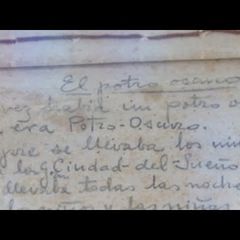 El potro oscuro
vez había un potro o
era Potro-Oscuro.
pre se llevaba los niñ
a la G. Ciudad-del-Sueño
llevaba todas las noche
niños y las niñas